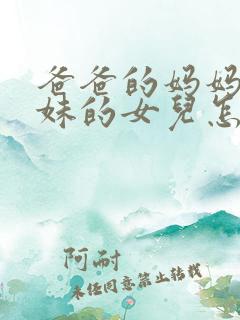 爸爸的妈妈
妹的女兒怎
阿耐
未经同意禁止转载